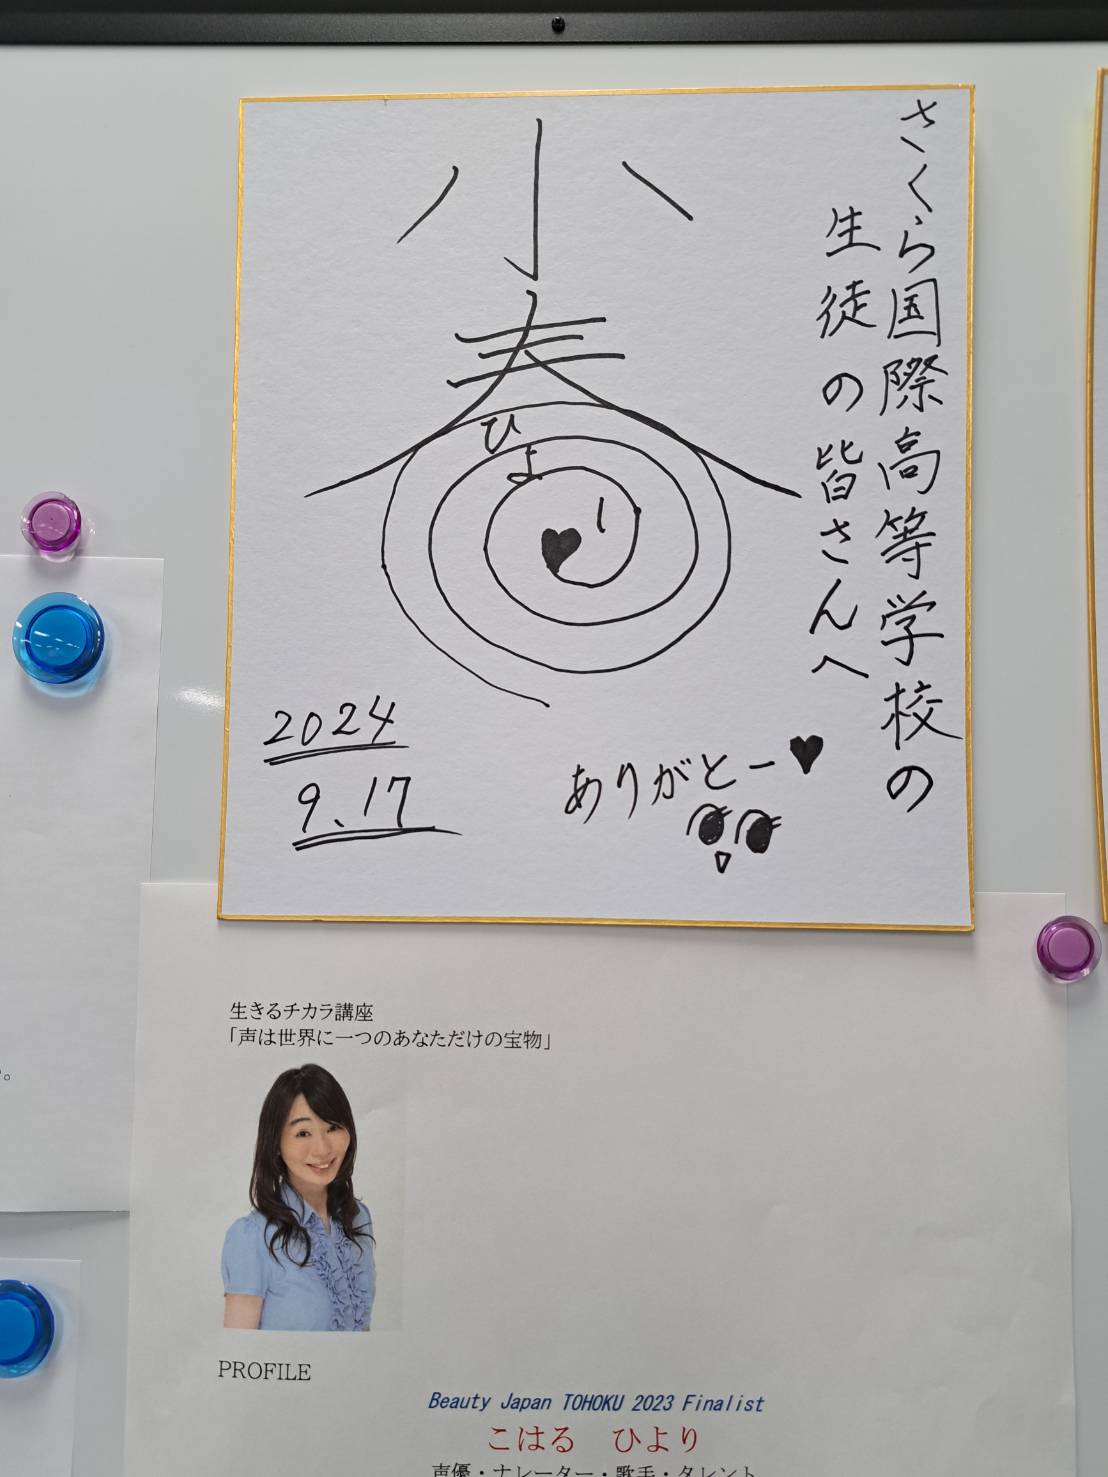 さくら国際高等学校の
生徒の皆さんへ
小春
ひより
2024
9.17
ありがとー♥
生きるチカラ講座
「声は世界に一つのあなただけの宝物」
PROFILE
Beauty Japan TOHOKU 2023 Finalist
こはる ひより
声優・ナレーター・歌手・タレント
。